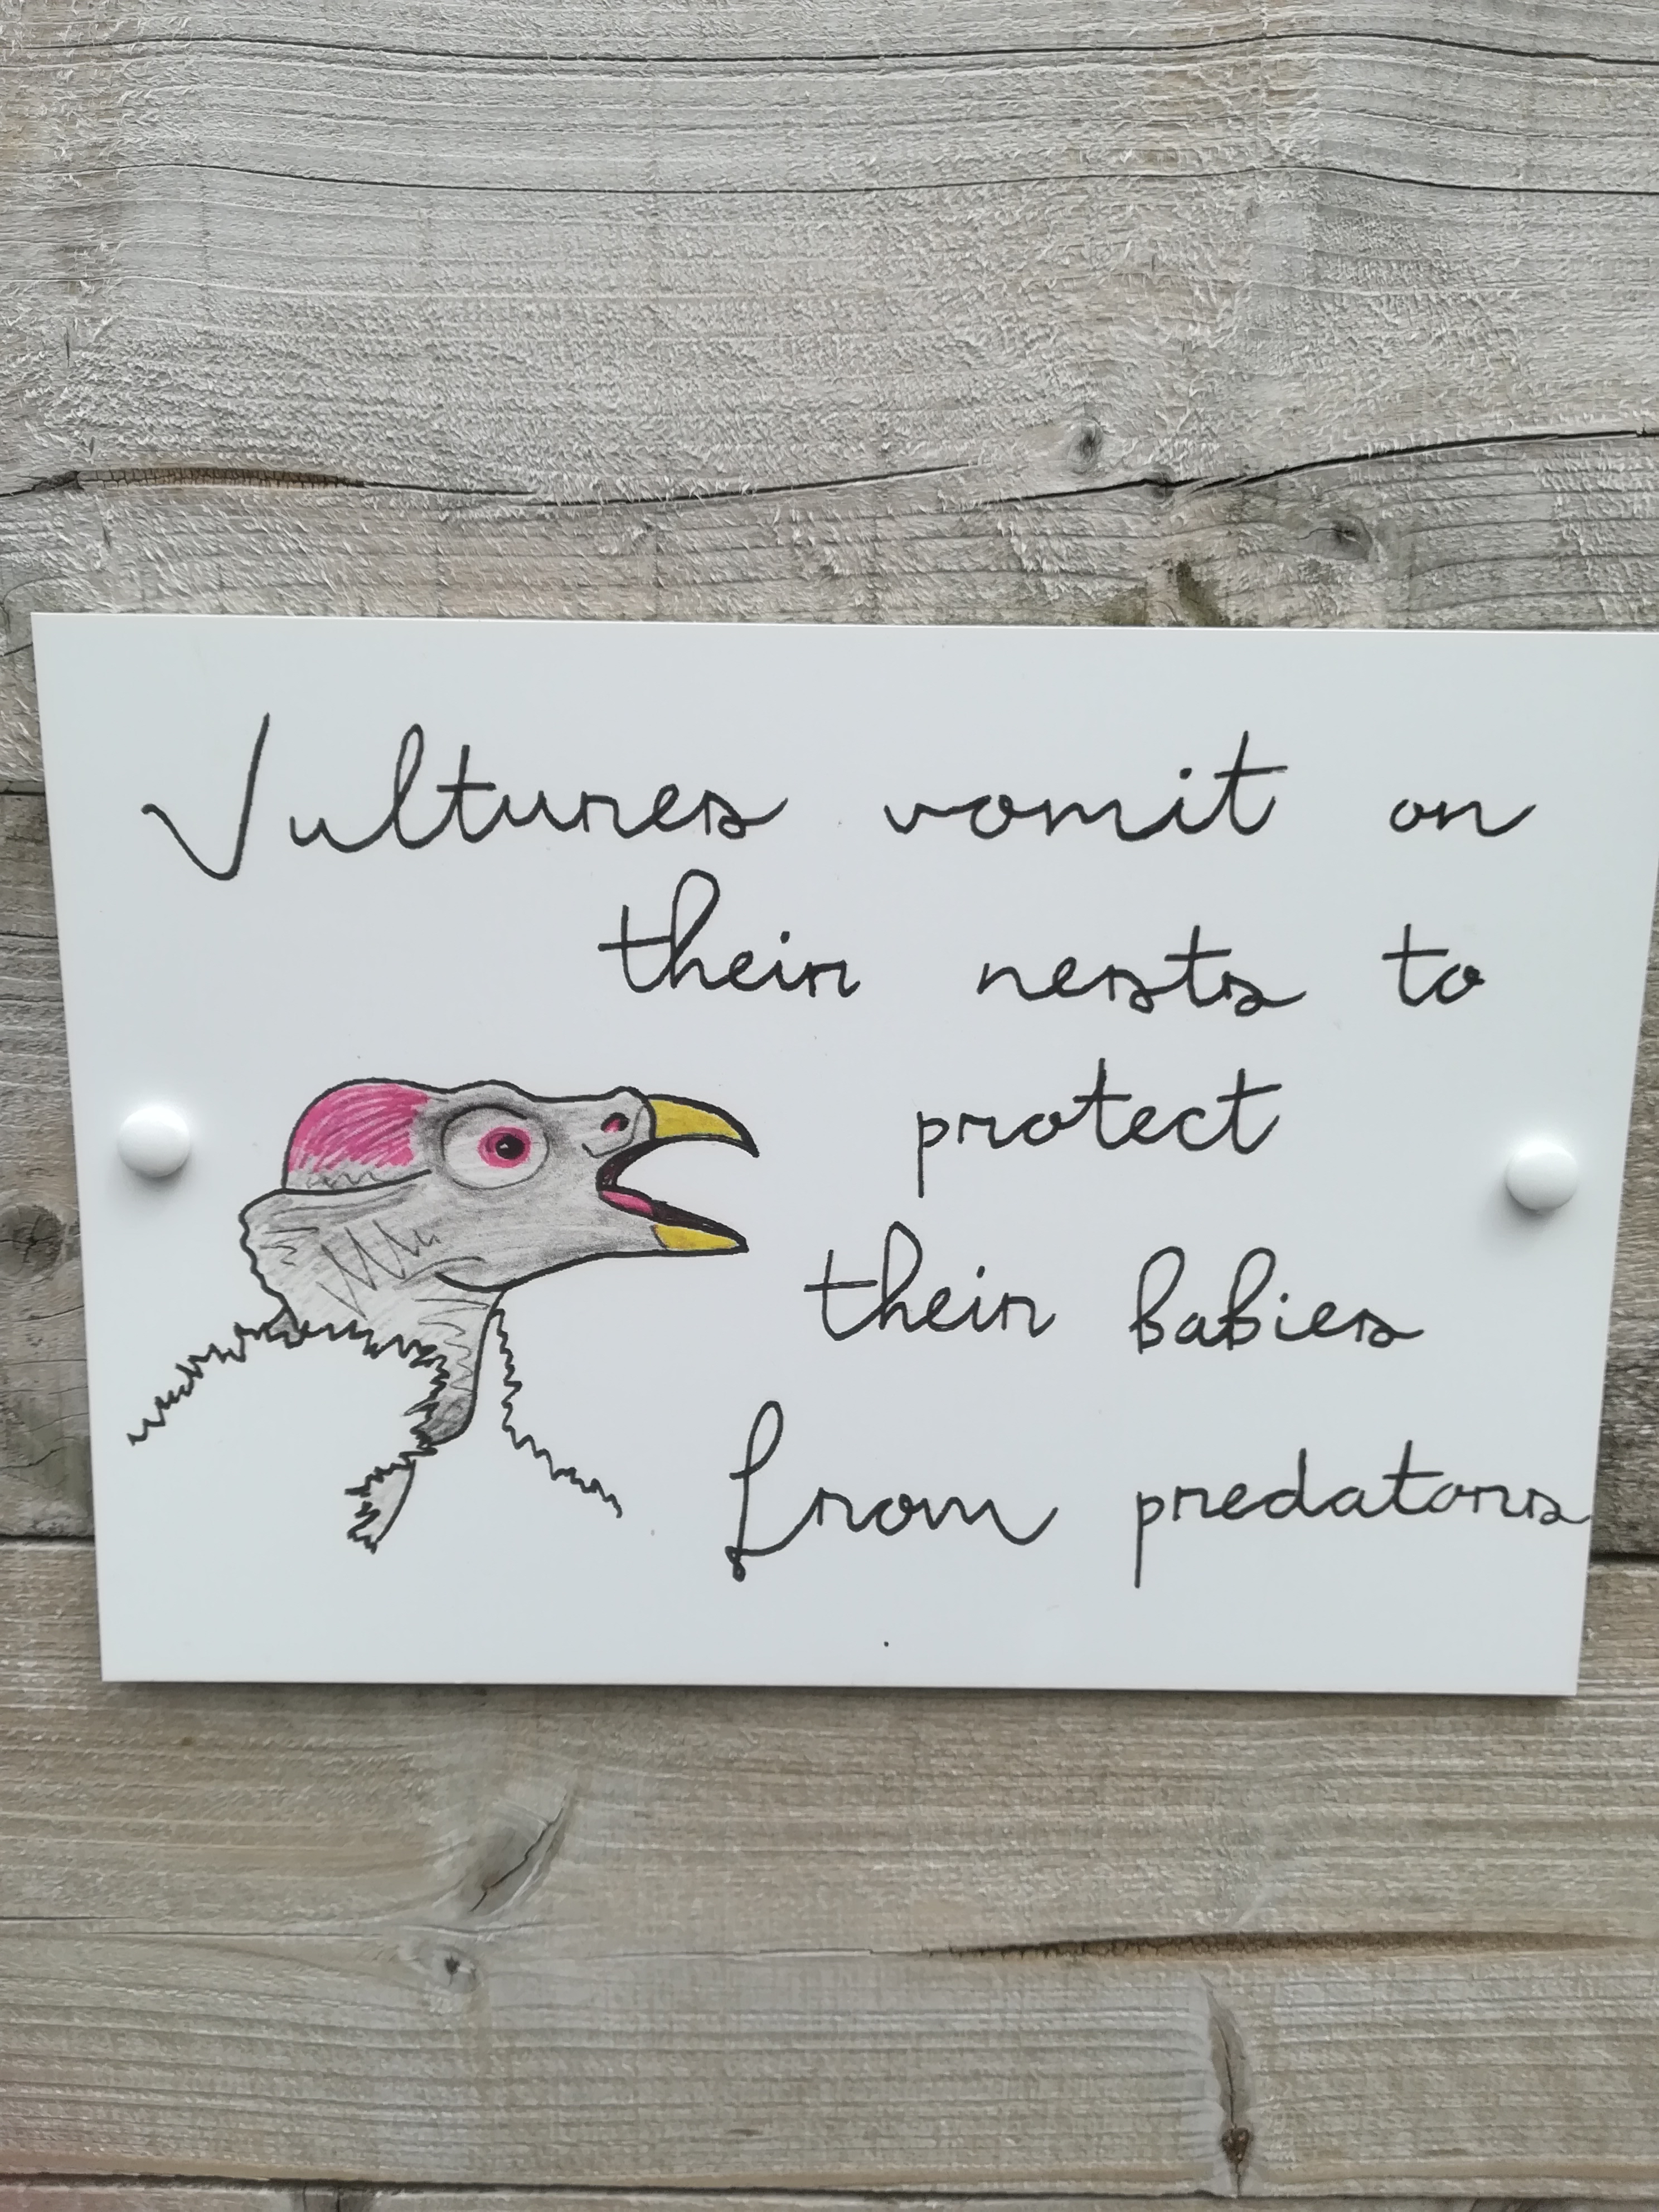 Vultures vomit on
their nests to
protect
their babies
from predators